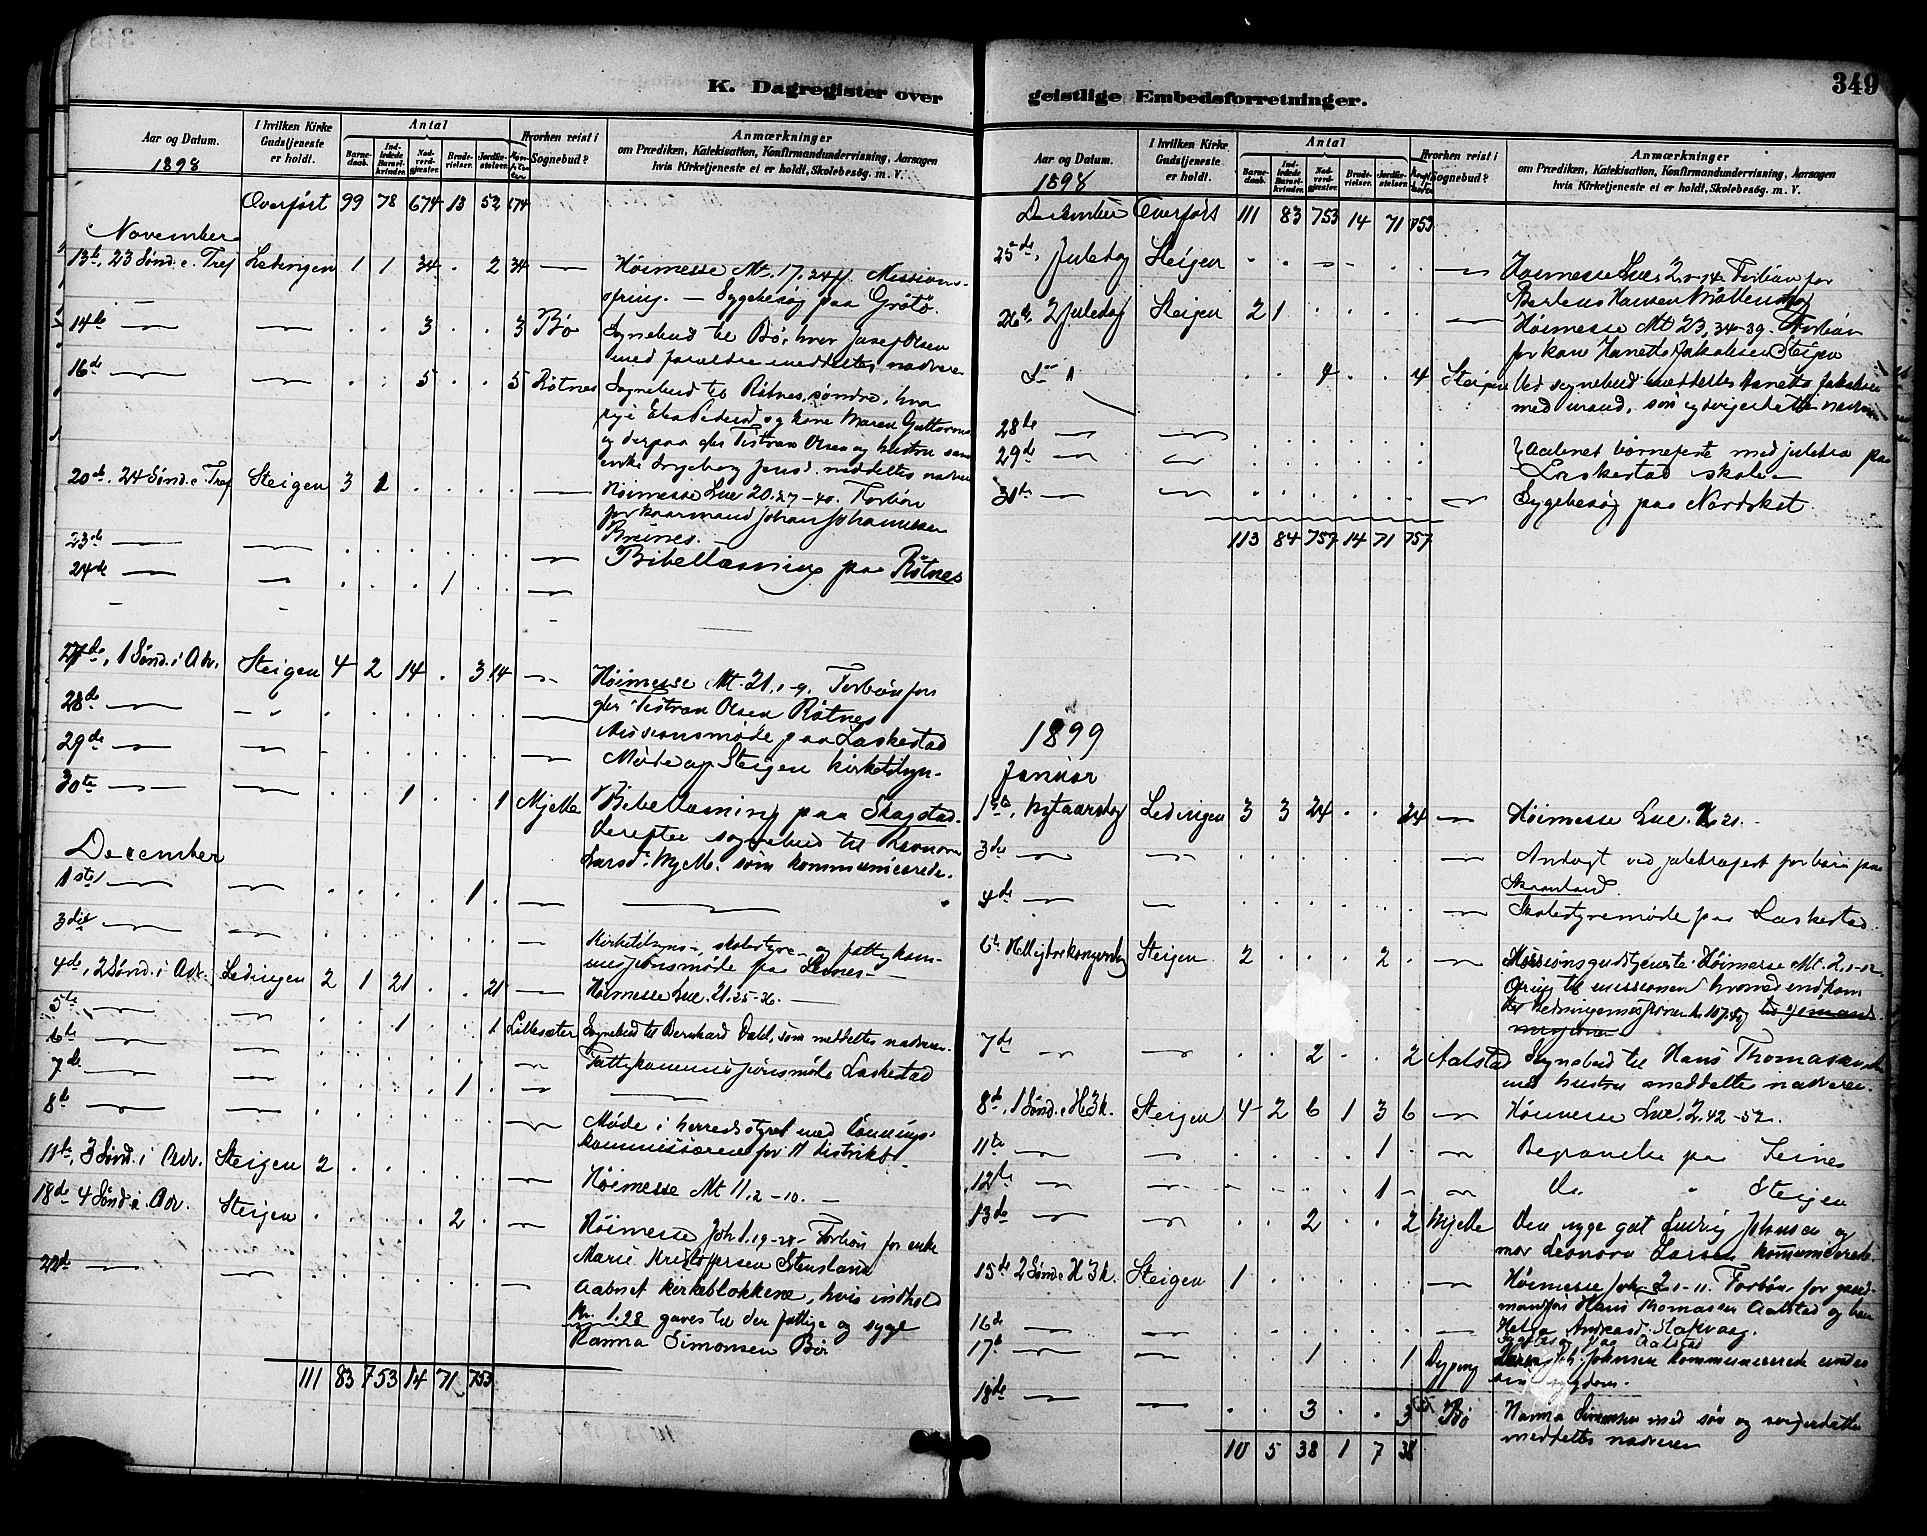 K. Dagregister over
Aar og Datum.
1898
I hvilken Kirke
Gudstjeneste
er holdt.
Antal
Barne-
daab.
Ind-
ledede
Barsel-
kvinder.
Nad-
verd-
gjæster.
Brude-
vielser.
Jordfæ-
stelser.
Hvorhen reist i
Sognebud?
Anmærkninger
om Prædiken, Katekisation, Konfirmandundervisning, Aarsagen
hvis Kirketjeneste ei er holdt, Skolebesøg. m. V.
Overført 99 78 674 13 52 674
November
13de, 23 Sønd. e. Tref Ledingen 1 1 34 . 2 34 Høimesse Mt. 17.24ff. Missions-
opring. — Sygebesøg paa Grøtø.
14de 3 . . 3 Bø Sognebud til Bø, hvor Josef Olsen
med forældre meddeltes nadvere
16de 5 . . 5 Røtnes Sognebud til Røtnes, søndre, hvor
syge og kone Maren
og derpaa Tistran Olsen og hustru samt
enke Ingeborg Jensd. meddeltes nadvere
20de. 24 Sønd. e. Tref Steigen 3 1 Høimesse Luc 20.27-40. Forbøn
for kaarmand Johan Johannessen
Breines.
23de Bibellæsning paa Røtnes
24de 1
27de, 1 Sønd. i Adv. Steigen 4 2 14 . 3 14 Høimesse Mt. 21.1-9. Forbøn for
Tistran Olsen Røtnes
28de Missionsmøde paa Laskestad
29de Møde af Steigen kirketilsyn.
30te 1 . . 1 Mjelle Bibellæsning paa Skagstad.
Derefter sognebud til Leonora
Larsd. Mjelle. som kommunicerede.
December
1ste 1
3die Kirketilsyns-, skolestyre- og fattigkom-
misjonsmøde paa Leines
4de, 2 Sønd. i Adv. Ledingen 2 1 21 . . 21 Høimesse Luc. 21.25-36.
5te 1 . . 1 Lillesæter Sognebud til Bernhard Dahl, som meddeltes nadveren.
6te Fattigkommisjonsmøde Laskestad
7de 1
8de Møde i herredsstyret med
kommissæren for distrikt.
11te, 3 Sønd. i Adv. Steigen 2 Høimesse Mt 11.2-10.
18de 4 Sønd. i. Adv. Steigen 2 Høimesse Joh 1.19-28. Forbøn for enke
Marie Kristoffersen Stensland
22de Aabnet kirkeblokkene, hvis indhold
Kr. 1.28 gaves til den fattige og syge
Hanna Simonsen Bø
111 83 753 14 71 753
geistlige Embedsforretninger.
349
Aar og Datum.
1898
I hvilken Kirke
Gudstjeneste
er holdt.
Antal
Barne-
daab.
Ind-
ledede
Barsel-
kvinder.
Nad-
verd-
gjæster.
Brude-
vielser.
Jordfæ-
stelser.
Hvorhen reist i
Sognebud?
Anmærkninger
om Prædiken, Katekisation, Konfirmandundervisning, Aarsagen
hvis Kirketjeneste ei er holdt, Skolebesøg. m. V.
December Overført 111 83 753 14 71 753
25de, Juledag Steigen Høimesse Luc. 2.1-14. Forbøn for
Hansen
26de 2 Juledag Steigen 2 1 Høimesse Mt 23,34-39. Forbøn
for kone Hanetta Jakobsen Steigen
4 . . 4 Steigen Ved sognebud meddeltes Hanetta Jakobsen
med mand, søn og svigerdatter nadveren
28de
29de Aabnet børnefeste med juletræ paa
Laskestad skole
31te Sygebesøg paa Nordskot.
113 84 757 14 71 757
1899
Januar
1ste, Nytaarsdag Ledingen 3 3 24 . . 24 Høimesse Luc. 2.21.
3die Andagt ved juletræfest for børn paa
Skaanland
4de Skolestyremøde paa Laskestad.
6te Helligtrekongersdag Steigen 2 2 Missionsgudstjeneste. Høimesse Mt. 2.1-12.
Opring til missionen hvorved indkom
7de 2 . . 2 Aalstad Sognebud til Hans Thomassen
med hustru meddeltes nadveren.
8de, 1 Sønd. e H3k. Steigen 4 2 6 1 3 6 Høimesse Luc. 2.42-52.
11te 1 Begravelse paa Leines
12te 1 Do " Steigen
13de 2 . . 2 Mjelle Den syge gut Ludvig Johnsen og
mor Leonora Larsen kommunicerede.
15de 2 Sønd e H3k. Steigen 1 Høimesse Joh. 2.1-11. Forbøn for gaard-
mandfru Hans Thomassen Aalstad og
Andreasd. Hakvaag.
16de Sygebesøg paa Aalstad
17de 1 . . 1 Dypping Johnsen kommunicerede under
sin sygdom.
18de 3 . . 3 Bø Hanna Simonsen med søn og svigerdatter
meddeltes nadveren
10 5 38 1 7 38